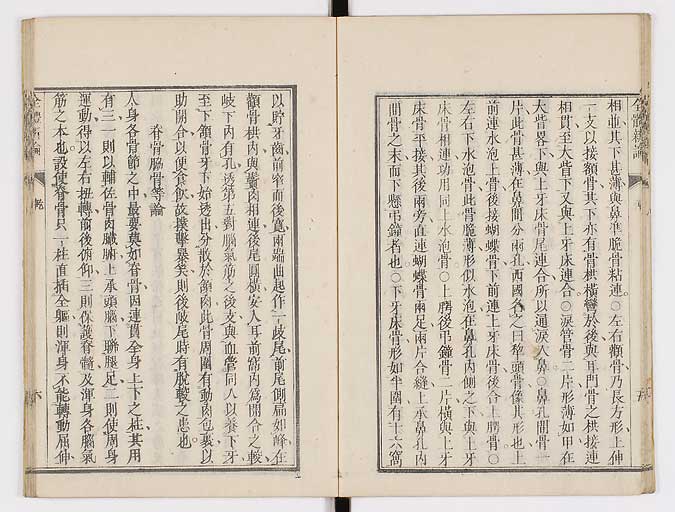 相並其下甚薄與鼻準脆骨粘連○左右顴骨乃長方形上伸
一支以接額骨其下亦有骨拱橫彎於後與耳門骨之拱接連
相貫至大眥下又與上牙床連合○淚管骨二片形薄如甲在
大眥畧下與上牙床骨尾連合所以通淚入鼻○鼻孔間骨一
片此骨甚薄在鼻間分兩孔西國名之曰犂頭骨像其形也上
前連水泡上骨後接蝴蝶骨下前連上牙床骨後合上腭骨○
左右下水泡骨此骨脆薄形似水泡在鼻孔內側之下與上牙
床骨相連功用同上水泡骨○上腭後弔鐘骨二片橫與上牙
床骨平接其後兩旁直連蝴蝶骨兩足兩片合縫上承鼻孔內
間骨之末而下懸弔鐘者也○下牙床骨形如半圍有十六窩
全體新論
乾
以貯牙齒前窄而後寬兩端曲起作一歧尾前尾側扁如峰在
顴骨拱內與鬢肉相連後尾圓橫安入耳前窩內為開合之骹
歧下內有孔透第五對腦氣筋之後支與血管同入以養下牙
至下頷骨牙下始透出分散於頷肉此骨周圍有動肉包裹以
助開合以便食飲故摸擊暴笑則後歧尾時有脫骹之患也
脊骨脇骨等論
人身各骨節之中最要莫如脊骨因連貫全身上下之柱其用
有三一則以輔佐骨肉臟腑上承頭腦下聯腿足二則使周身
運動得以左右扭轉前後俯仰三則保護脊髓及渾身各腦氣
筋之本也設使脊骨只一柱直插全軀則渾身不能轉動屈伸
乾
六